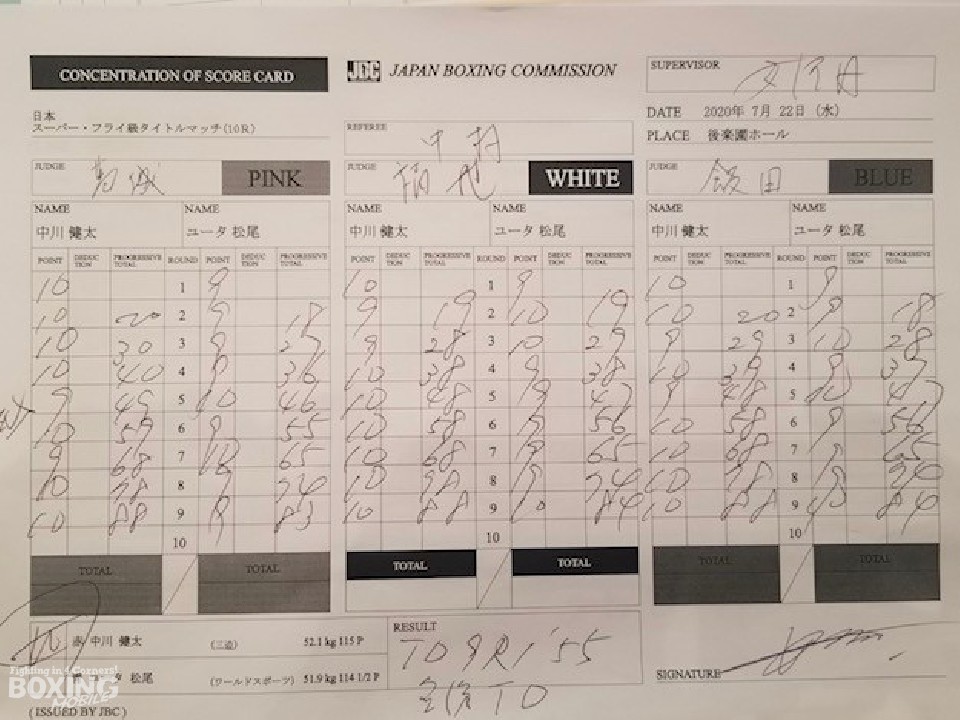 CONCENTRATION OF SCORE CARD
JBC JAPAN BOXING COMMISSION
SUPERVISOR
日本
スーパー・フライ級タイトルマッチ(10R)
DATE 2020年 7月 22日 (水)
REFEREE 中村
PLACE 後楽園ホール
JUDGE PINK
JUDGE 福地 WHITE
JUDGE 飯田 BLUE
NAME NAME NAME NAME NAME NAME
中川 健太 ユータ 松尾 中川 健太 ユータ 松尾 中川 健太 ユータ 松尾
POINT DEDUCTION PROGRESSIVE TOTAL ROUND POINT DEDUCTION PROGRESSIVE TOTAL POINT DEDUCTION PROGRESSIVE TOTAL ROUND POINT DEDUCTION PROGRESSIVE TOTAL POINT DEDUCTION PROGRESSIVE TOTAL ROUND POINT DEDUCTION PROGRESSIVE TOTAL
10 1 9 10 1 9 10 1 9
10 20 2 9 18 9 19 2 10 19 10 20 2 9 18
10 30 3 9 27 9 28 3 10 29 9 29 3 10 28
10 40 4 9 36 10 38 4 9 38 10 39 4 9 37
9 49 5 10 46 10 48 5 9 47 9 48 5 10 47
10 59 6 9 55 10 58 6 9 56 10 58 6 9 56
9 68 7 10 65 10 68 7 9 65 10 68 7 9 65
10 78 8 9 74 10 78 8 9 74 10 78 8 9 74
10 88 9 9 83 10 88 9 10 84 10 88 9 10 84
10 10 10
TOTAL TOTAL TOTAL TOTAL TOTAL TOTAL
中川 健太 (三迫) 52.1 kg 115 P
RESULT
TO 9R 1'55
松尾 (ワールドスポーツ) 51.9 kg 114 1/2 P
TO
SIGNATURE
Fighting in 4 Corners!
BOXING
MOBILE
(ISSUED BY JBC)